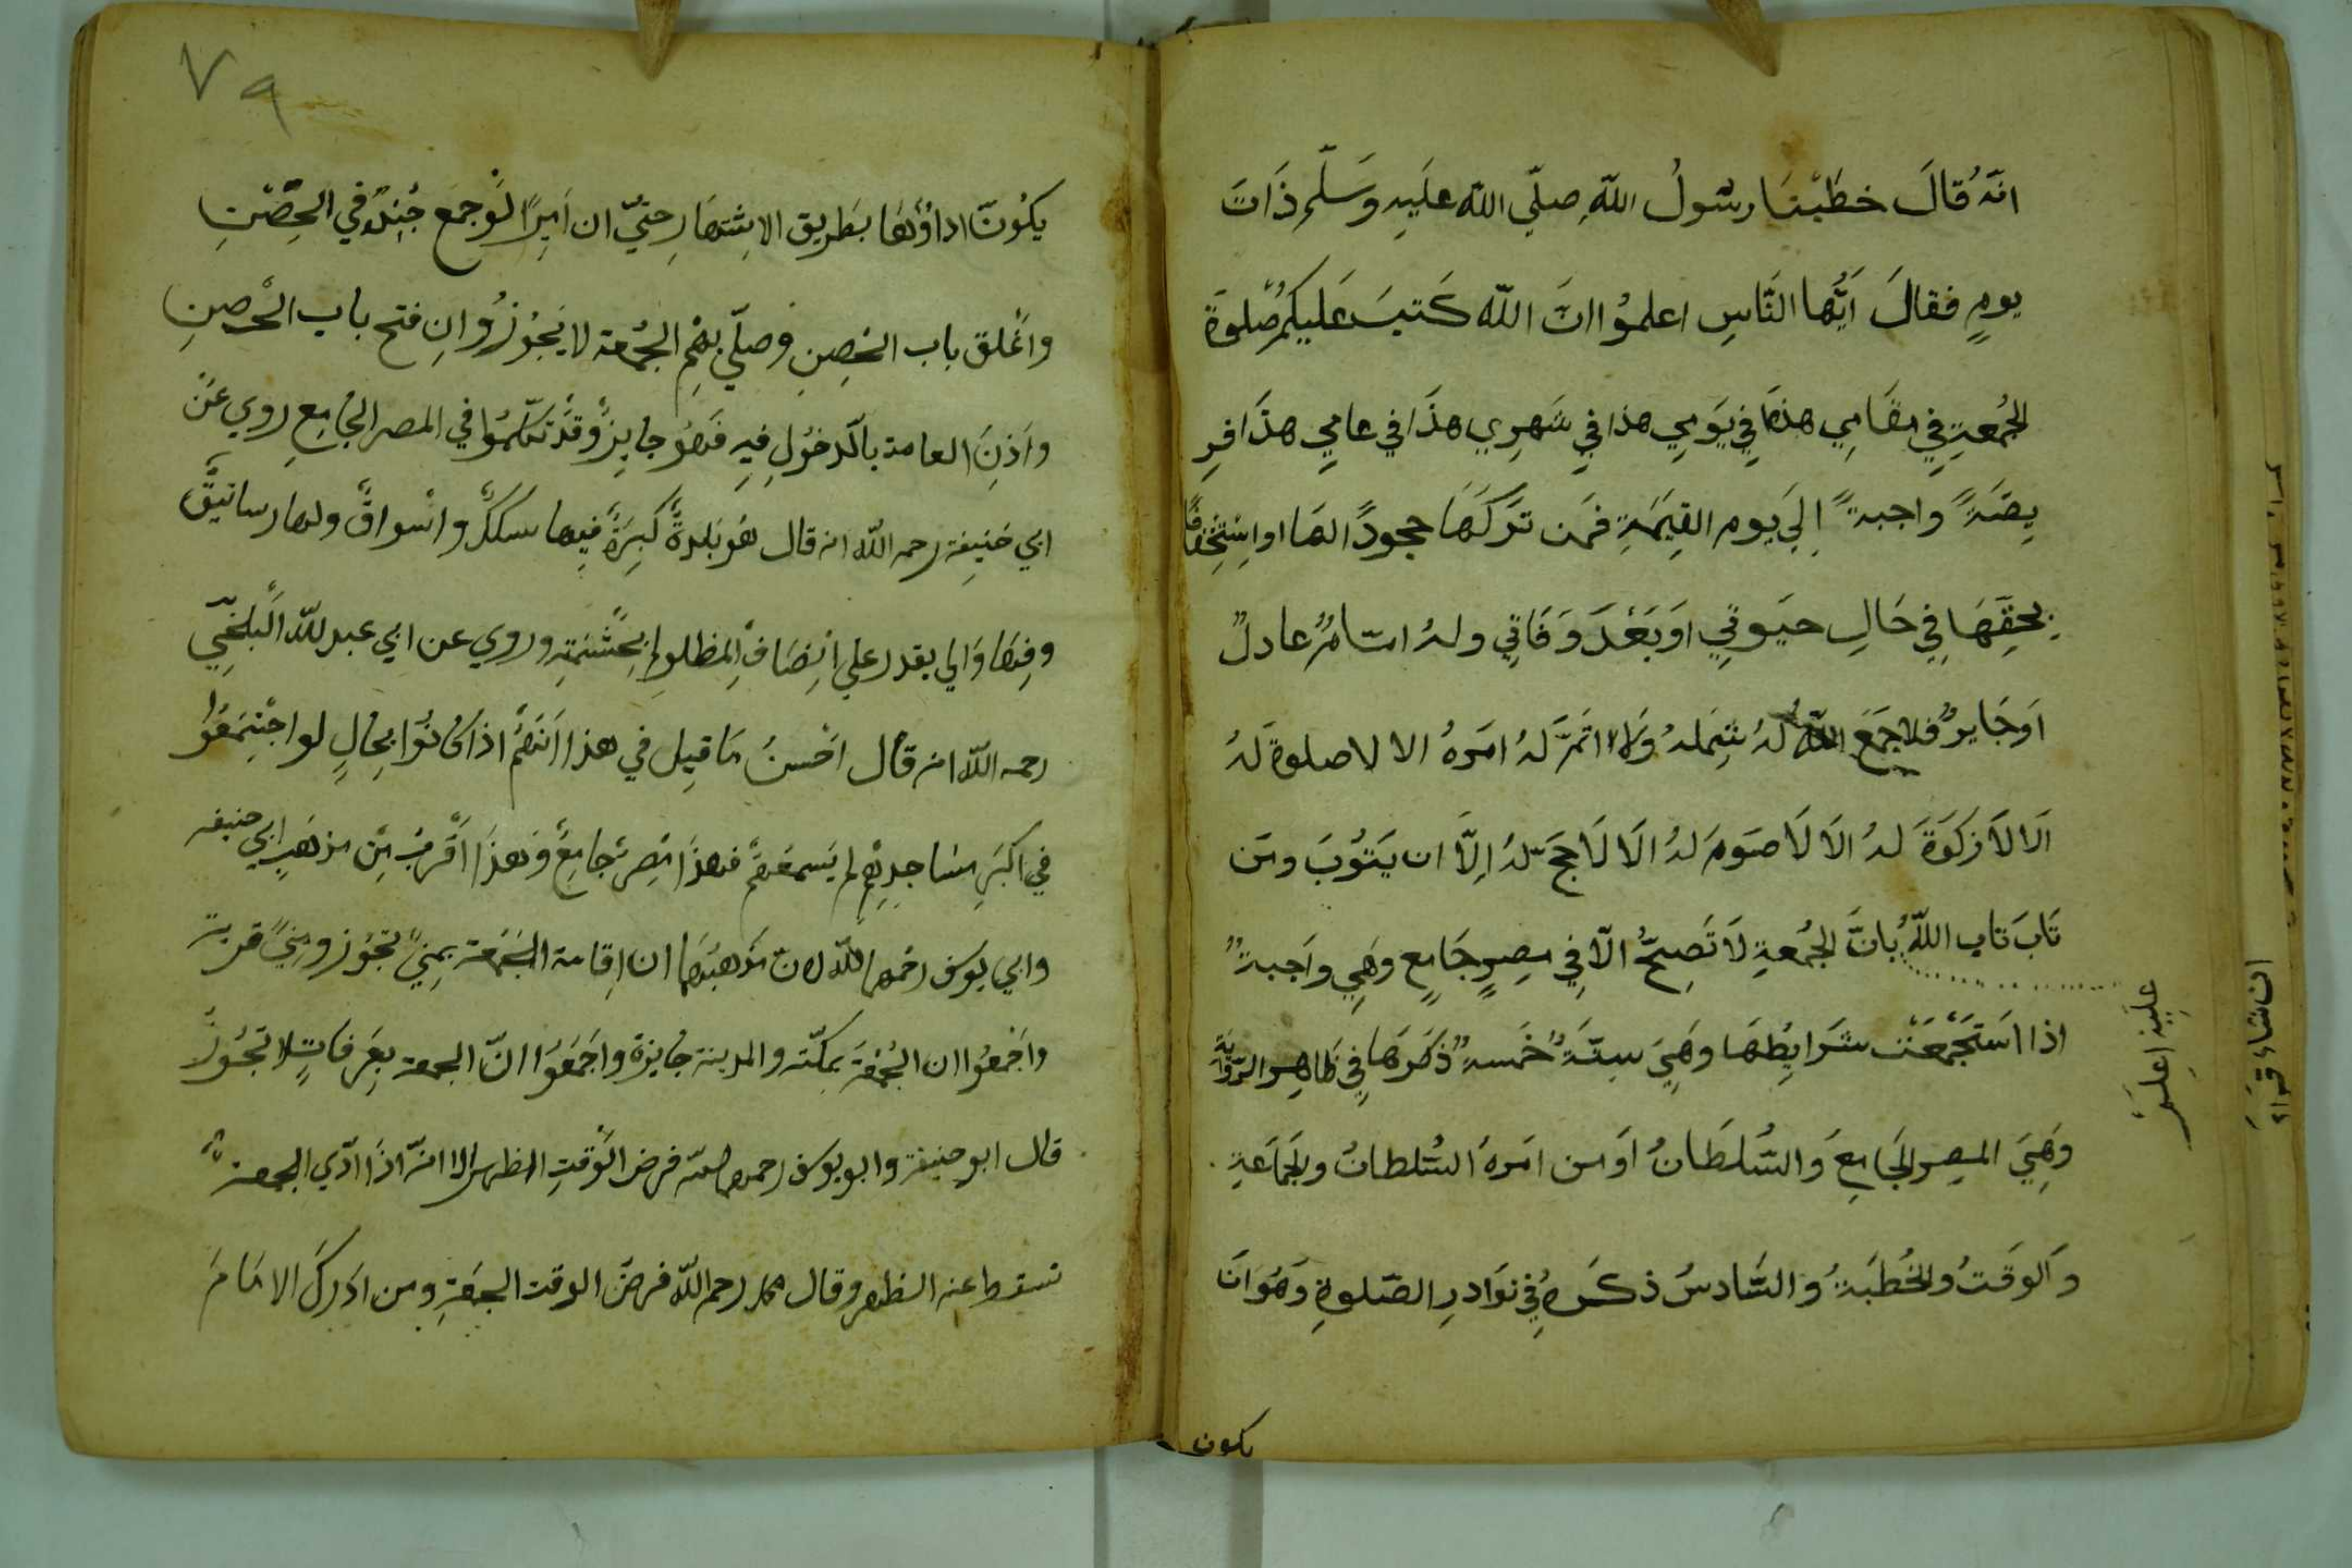 انّهُ قالَ خطَبْنَا رسُولُ اللّهِ صلّي اللّه علَيهِ وَسَلّم ذَاتَ
يومٍ فقالَ اَيُّها النَّاسِ اعلموُا انَّ اللّه كَتبَ عَليكمُ صَلوةَ
الجُمعةِ في مقَامِي هذا فِي يَومِي هذا في شَهرِي هذَا في عامِي هذَا فر
يضَةً واجبةً اِلَي يوم القِيٰمَةِ فمَن تَرَكَهَا جحودًا لهَا اواِسْتِخْفافًا
بِحقِّهَا فِي حَالِ حيَوتِي اوَبَعْدَ وَفَاتِي ولهُ امَامٌ عادلٌ
اَوجَايرٌ فلا جَمَعَ اللّهُ لَهُ شِملهُ وَلا اتمَّ لَهُ امَرهُ الا لا صلوةَ لَهُ
الَا لَا زكَوةَ لهُ الَا لَا صَومَ لهُ الَا لَا حجَّ لهُ اِلَّا ان يَتوُبَ ومَن
تَابَ تَاب اللّهُ بانَّ الجُمعةِ لَا تَصِحُّ الّا فِي مِصرٍ جَامِعٍ وهَيِ واَجبةٌ
عَلَيْهِ اعلَمْ
اذا استَجْمَعَتْ شرَايِطُهَا وهَيَ سِتّةٌ خَمسةٌ ذكَرهَا فِي ظَاهِرِ الرّوايَةِ
وَهِيَ المِصر الجَامِعَ وَالسُّلطَانُ اوَ من امَرهُ السُّلطانُ والجَمَاعَةِ
وَالوقَتُ والخُطبَةُ وَالسَّادسُ ذكَرهُ فِي نوَادرِ الصّلوةِ وَهُوَ انَ
يكون
ان شاء
٧٩
يكوُنَ اداؤُهَا بطَريق الاِشتهَارِ حتيّ ان اَمِيرًا لَوجمَع جُندهُ في الحِصْنِ
واَغْلق باب الحِصنِ وصلّي بهِمِ الجُمعة لا يَجُوزُ وانِ فتح باب الحْصنِ
واَذِنَ العامة بالدّخوُلِ فيهِ فهَوُ جايزٌ وَقَدْ تكلّموُا في المصر الجامِعِ روي عَنْ
ابي حَنيفة رحمه اللّه انه قال هوُ بَلدةٌ كَبِيرَةٌ فيِها سكَكٌ واَسْواقٌ ولها رساتيقٌ
وفيِهَا وَالي يقدر علي اِنْصَافِ المظلومِ بِحِشْمَتِهِ وروي عن ابي عبد اللّه البَلخِّي
رحمه اللّه انه قال احْسنُ مَا قيِل في هذا اَنَّهُمْ اذا كانوُا بِحالٍ لو اجْتِمَعُوْا
في اكبَرِ مسَاجدِهِم لم يَسمعهم فهذَا مِصرٌ جامِعٌ وَهذَا اَقْربُ مِن مذهَبِ ابي حنيفه
وابي يوسف رحمهما اللّه لانّ مذَهبَهُما ان اِقامة الجُمعة بِمِنيً تجوُز ومِنيً قرية
واجَمعُوا ان الجُمعَة بمكّة والمدينة جايزة واجَمَعَوُا انّ الجمعة بِعَرفَاتٍ لا تجُوْزُ
قال ابو حنيفة وابو يوسف رحمهما اللّه فرض الوَقتِ الظهر الا انّه اذَا ادّي الجمعة
تسقط عنه الظهر وقال محمد رحم اللّه فرضَ الوقت الجمَعةِ ومن ادَركَ الامَامَ